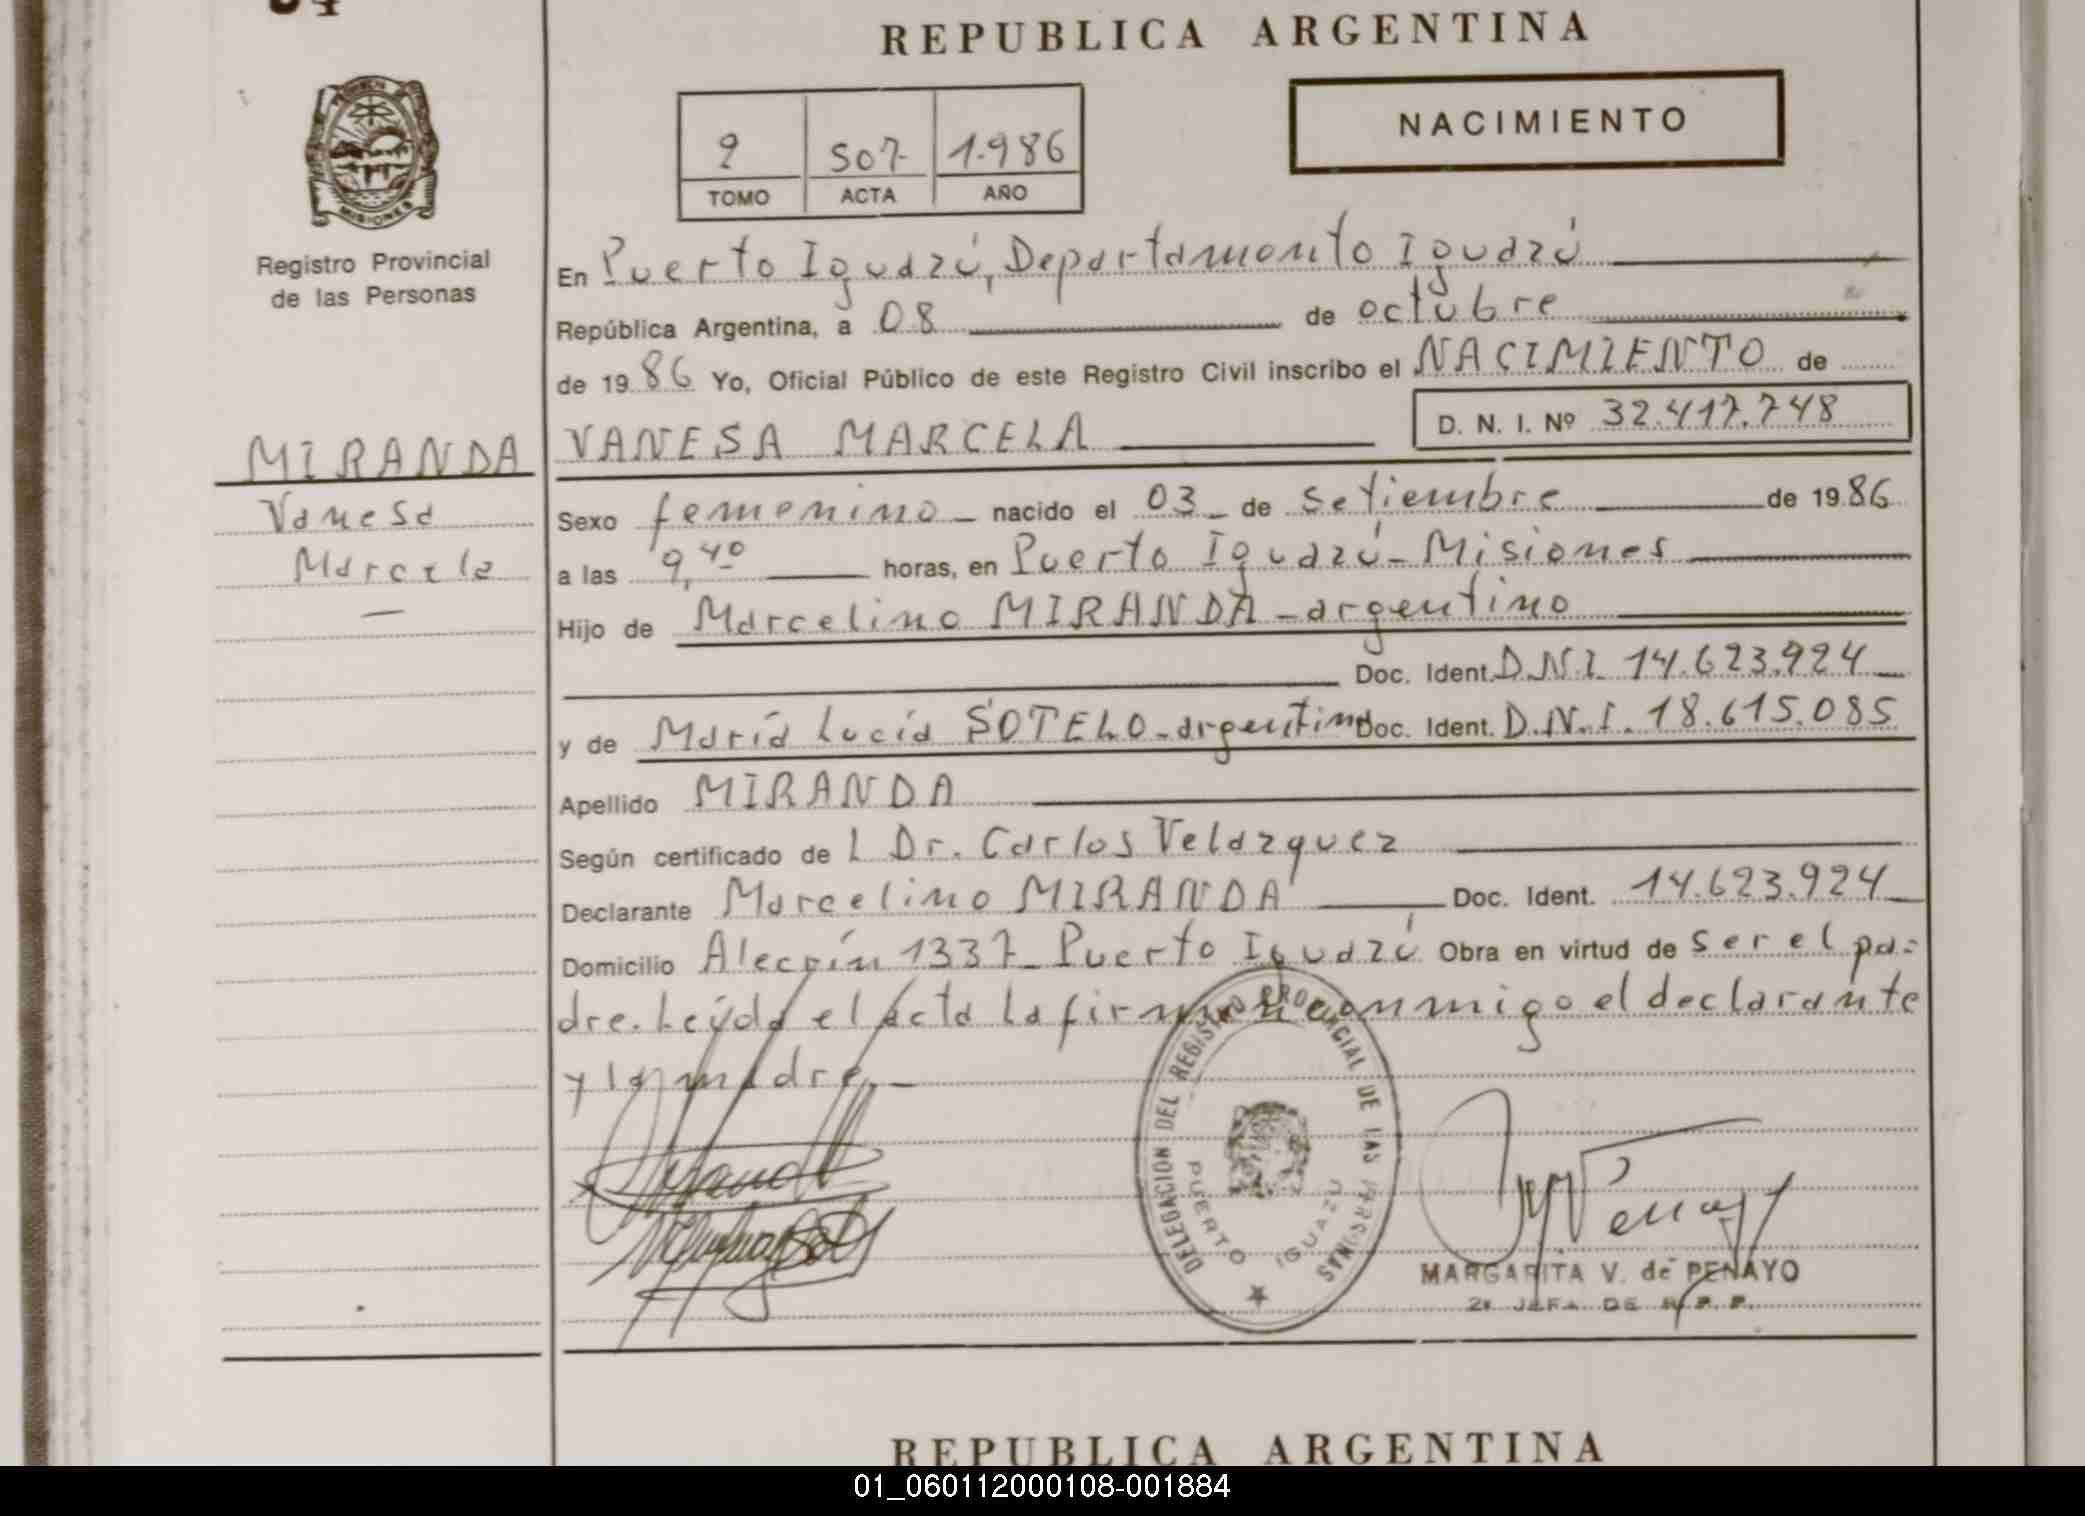 REPUBLICA ARGENTINA
MISIONES
Registro Provincial
de las Personas
2 507 1.986
TOMO ACTA AÑO
NACIMIENTO
En Puerto Iguazú, Departamento Iguazú
República Argentina, a 08 de octubre
de 1986 Yo, Oficial Público de este Registro Civil inscribo el NACIMIENTO de
D. N. I. Nº 32.417.748
MIRANDA
Vanesa
Marcela
VANESA MARCELA
Sexo femenino nacido el 03 de Setiembre de 1986
a las 9,40 horas, en Puerto Iguazú - Misiones
Hijo de Marcelino MIRANDA - argentino
Doc. Ident. D.N.I. 14.623.924
y de María Lucía SOTELO - argentina Doc. Ident. D.N.I. 18.615.085
Apellido MIRANDA
Según certificado de l Dr. Carlos Velazquez
Declarante Marcelino MIRANDA Doc. Ident. 14.623.924
Domicilio Alecrín 1337 - Puerto Iguazú Obra en virtud de ser el pa-
dre. Leída el acta la firman conmigo el declarante
y la madre. -
DELEGACION DEL REGISTRO PROVINCIAL DE LAS PERSONAS
PUERTO IGUAZU
MARGARITA V. de PENAYO
2ª JEFA DE R. P. P.
REPUBLICA ARGENTINA
01_060112000108-001884